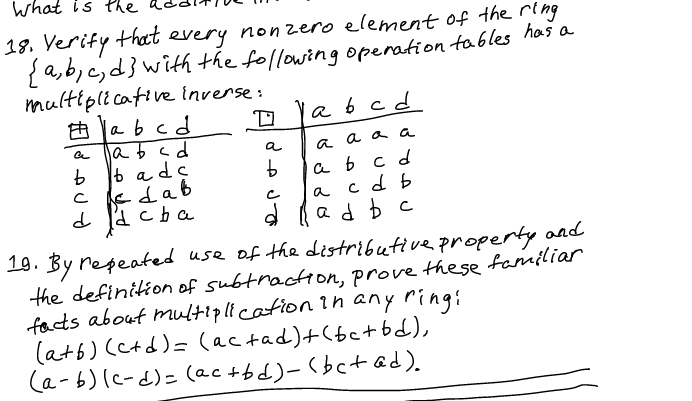 What is the
18. Verify that every nonzero element of the ring
{a,b,c,d} with the following operation tables has a
multiplicative inverse:
⊞ | a b c d    ⊡ | a b c d
a | a b c d    a | a a a a
b | b a d c    b | a b c d
c | c d a b    c | a c d b
d | d c b a    d | a d b c
19. By repeated use of the distributive property and
the definition of subtraction, prove these familiar
facts about multiplication in any ring:
(a+b)(c+d)=(ac+ad)+(bc+bd),
(a-b)(c-d)=(ac+bd)-(bc+ad).